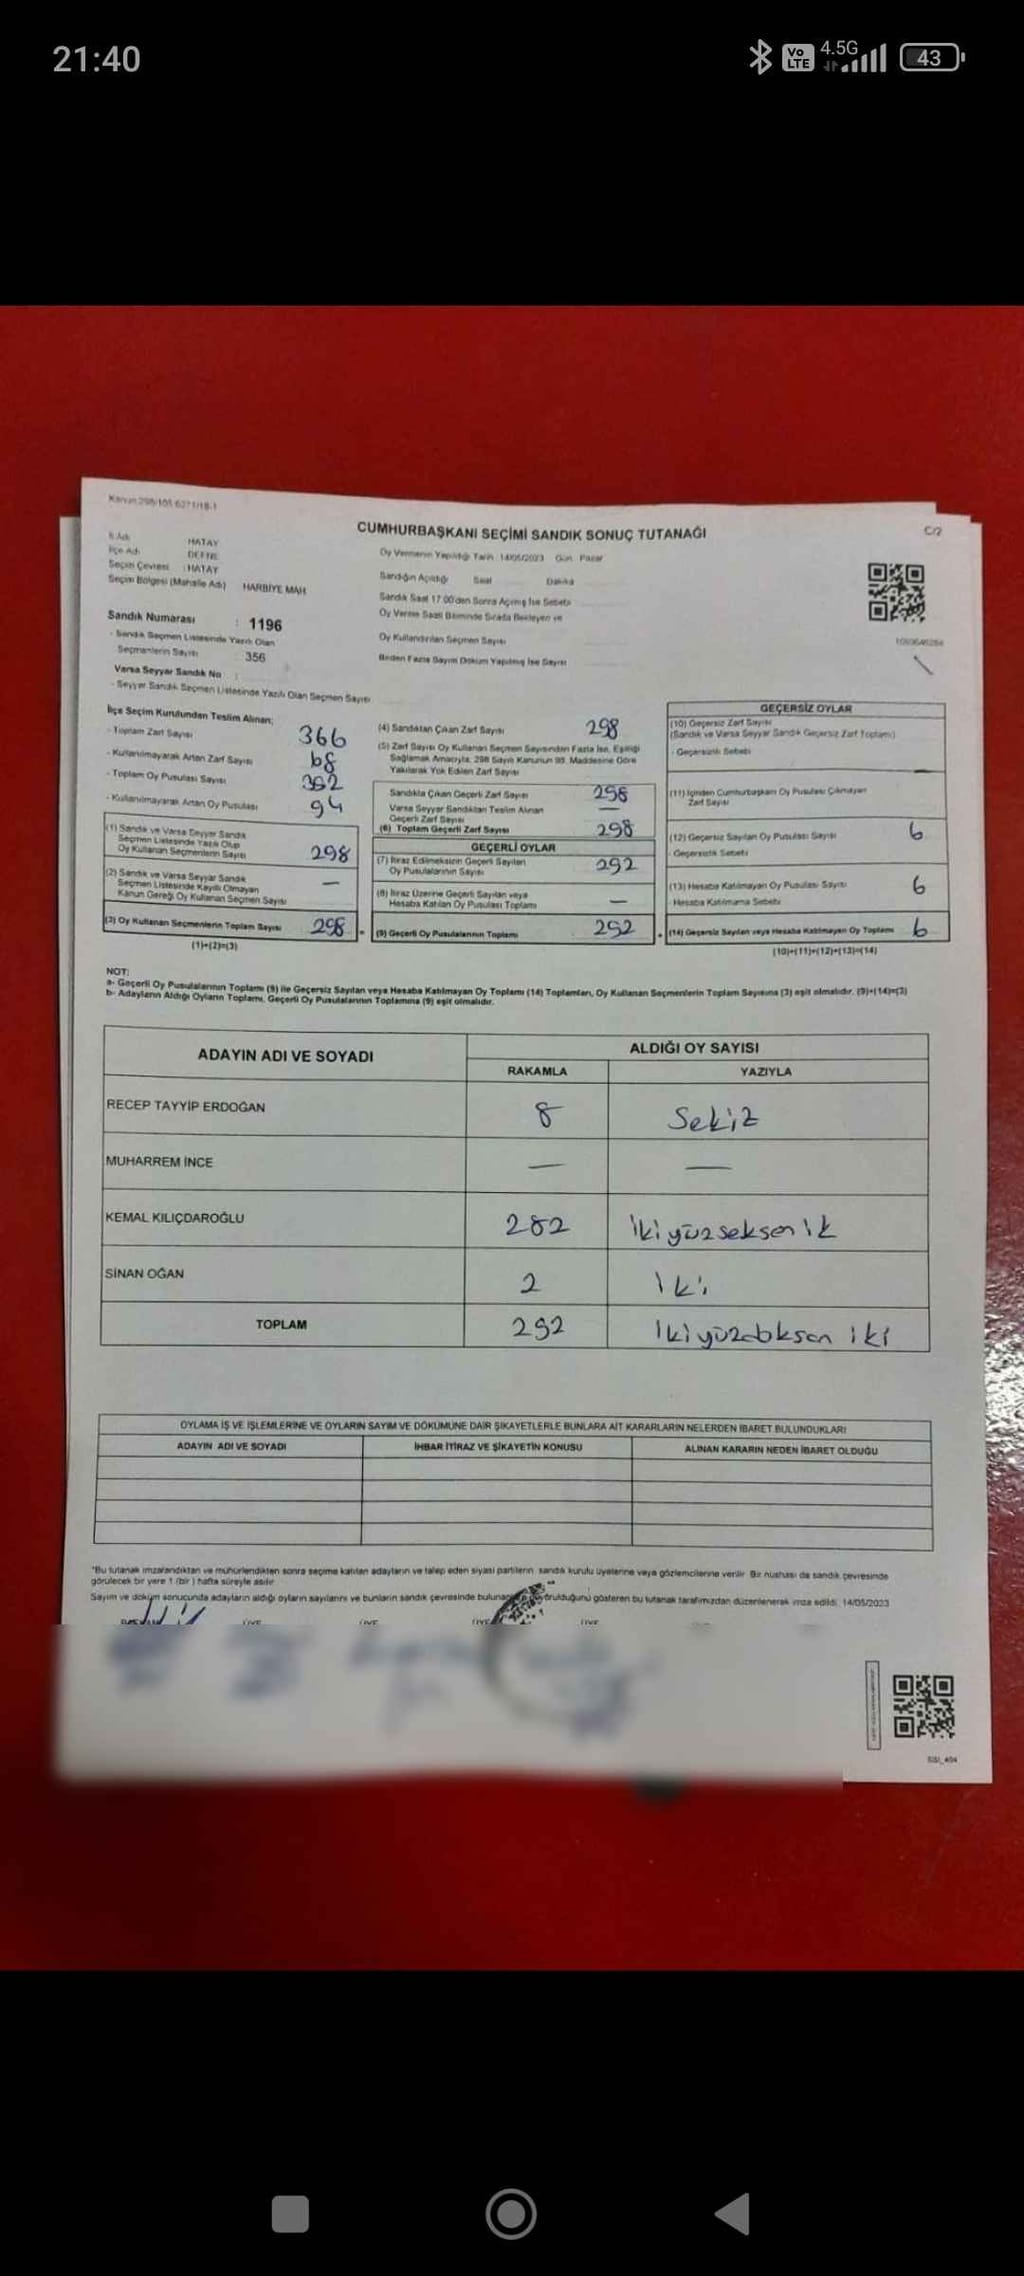 21:40
Vo LTE 4.5G 43
Kanun:298/105 6271/18-1
CUMHURBAŞKANI SEÇİMİ SANDIK SONUÇ TUTANAĞI
C/2
İl Adı HATAY
İlçe Adı DEFNE
Seçim Çevresi : HATAY
Seçim Bölgesi (Mahalle Adı) HARBİYE MAH
Sandık Numarası : 1196
- Sandık Seçmen Listesinde Yazılı Olan
Seçmenlerin Sayısı : 356
Varsa Seyyar Sandık No :
- Seyyar Sandık Seçmen Listesinde Yazılı Olan Seçmen Sayısı
Oy Vermenin Yapıldığı Tarih : 14/05/2023 Gün : Pazar
Sandığın Açıldığı Saat Dakika
Sandık Saat 17.00'den Sonra Açılmış İse Sebebi
Oy Verme Saati Bitiminde Sırada Bekleyen ve
Oy Kullandırılan Seçmen Sayısı
Birden Fazla Sayım Döküm Yapılmış İse Sayısı
İlçe Seçim Kurulundan Teslim Alınan;
- Toplam Zarf Sayısı 366
- Kullanılmayarak Artan Zarf Sayısı 68
- Toplam Oy Pusulası Sayısı 392
- Kullanılmayarak Artan Oy Pusulası 94
(1) Sandık ve Varsa Seyyar Sandık
Seçmen Listesinde Yazılı Olup
Oy Kullanan Seçmenlerin Sayısı 298
(2) Sandık ve Varsa Seyyar Sandık
Seçmen Listesinde Kayıtlı Olmayan
Kanun Gereği Oy Kullanan Seçmen Sayısı —
(3) Oy Kullanan Seçmenlerin Toplam Sayısı 298
(1)+(2)=(3)
(4) Sandıktan Çıkan Zarf Sayısı 298
(5) Zarf Sayısı Oy Kullanan Seçmen Sayısından Fazla İse, Eşitliği
Sağlamak Amacıyla, 298 Sayılı Kanunun 98. Maddesine Göre
Yakılarak Yok Edilen Zarf Sayısı
Sandıkta Çıkan Geçerli Zarf Sayısı 298
Varsa Seyyar Sandıktan Teslim Alınan
Geçerli Zarf Sayısı —
(6) Toplam Geçerli Zarf Sayısı 298
GEÇERLİ OYLAR
(7) İtiraz Edilmeksizin Geçerli Sayılan
Oy Pusulalarının Sayısı 292
(8) İtiraz Üzerine Geçerli Sayılan veya
Hesaba Katılan Oy Pusulası Toplamı —
(9) Geçerli Oy Pusulalarının Toplamı 292
GEÇERSİZ OYLAR
(10) Geçersiz Zarf Sayısı
(Sandık ve Varsa Seyyar Sandık Geçersiz Zarf Toplamı)
- Geçersizlik Sebebi
(11) İçinden Cumhurbaşkanı Oy Pusulası Çıkmayan
Zarf Sayısı
(12) Geçersiz Sayılan Oy Pusulası Sayısı 6
- Geçersizlik Sebebi
(13) Hesaba Katılmayan Oy Pusulası Sayısı 6
- Hesaba Katılmama Sebebi
(14) Geçersiz Sayılan veya Hesaba Katılmayan Oy Toplamı 6
(10)+(11)+(12)+(13)=(14)
NOT:
a- Geçerli Oy Pusulalarının Toplamı (9) ile Geçersiz Sayılan veya Hesaba Katılmayan Oy Toplamı (14) Toplamları, Oy Kullanan Seçmenlerin Toplam Sayısına (3) eşit olmalıdır. (9)+(14)=(3)
b- Adayların Aldığı Oyların Toplamı, Geçerli Oy Pusulalarının Toplamına (9) eşit olmalıdır.
ADAYIN ADI VE SOYADI ALDIĞI OY SAYISI
RAKAMLA YAZIYLA
RECEP TAYYİP ERDOĞAN 8 Sekiz
MUHARREM İNCE — —
KEMAL KILIÇDAROĞLU 282 İkiyüzseksen ik
SİNAN OĞAN 2 İki
TOPLAM 292 İkiyüzdoksan iki
OYLAMA İŞ VE İŞLEMLERİNE VE OYLARIN SAYIM VE DÖKÜMÜNE DAİR ŞİKAYETLERLE BUNLARA AİT KARARLARIN NELERDEN İBARET BULUNDUKLARI
ADAYIN ADI VE SOYADI İHBAR İTİRAZ VE ŞİKAYETİN KONUSU ALINAN KARARIN NEDEN İBARET OLDUĞU
*Bu tutanak imzalandıktan ve mühürlendikten sonra seçime katılan adayların ve talep eden siyasi partilerin sandık kurulu üyelerine veya gözlemcilerine verilir. Bir nüshası da sandık çevresinde
görülecek bir yere 1 (bir) hafta süreyle asılır.
Sayım ve döküm sonucunda adayların aldığı oyların sayılarını ve bunların sandık çevresinde bulunan duyurulduğunu gösteren bu tutanak tarafımızdan düzenlenerek imza edildi. 14/05/2023
BAŞKAN ÜYE ÜYE ÜYE ÜYE